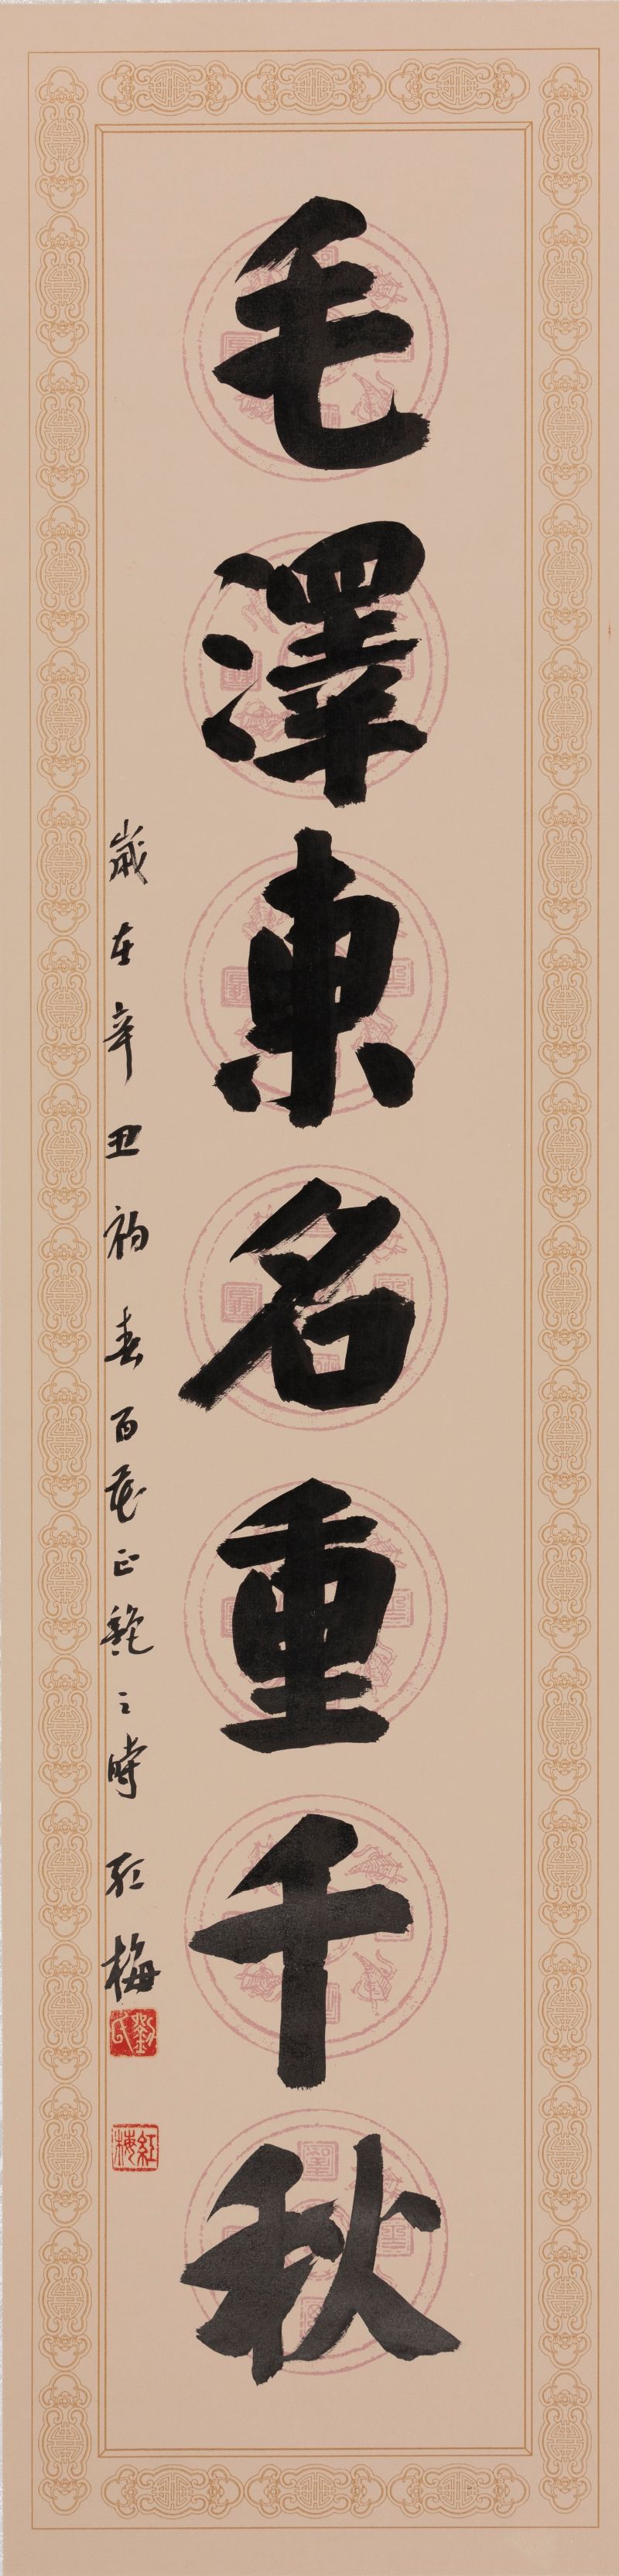 毛澤東名重千秋
歲在辛丑初春百花正艷之時 紅梅
劉氏
紅梅